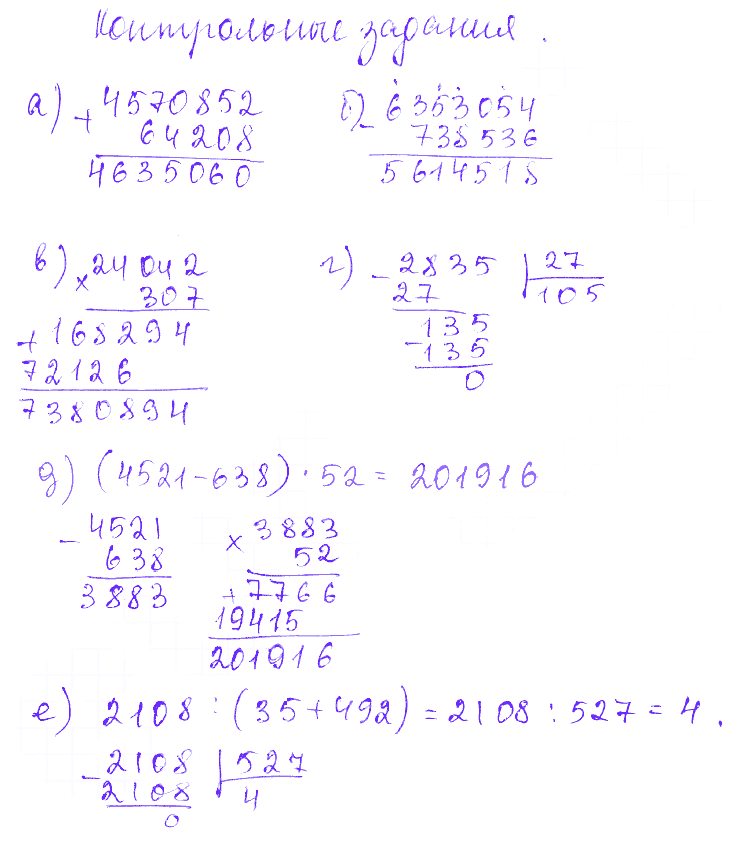 Контрольные задания.
а) + 4570852
64208
4635060
б) - 6353054
738536
5614518
в) × 24042
307
+ 168294
72126
7380894
г) - 2835 | 27
27 105
135
- 135
0
д) (4521-638)·52= 201916
- 4521
638
3883
× 3883
52
+ 7766
19415
201916
е) 2108:(35+492)=2108:527=4.
- 2108 | 527
2108 4
0